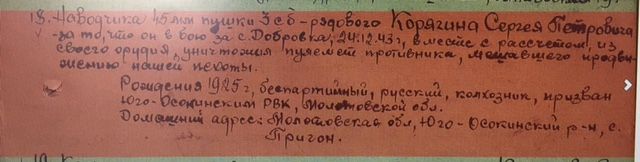 18. Наводчика 45 мм пушки 3 сб - рядового Корягина Сергея Петровича
- за то, что он в бою за с. Добровка, 24.12.43 г, вместе с рассчетом, из
своего орудия, уничтожил пулемет противника, мешавшего продви-
жению нашей пехоты.
Рождения 1925 г, беспартийный, русский, колхозник, призван
Юго-Осокинским РВК, Молотовской обл.
Домашний адрес: Молотовская обл, Юго-Осокинский р-н, с.
Пригон.